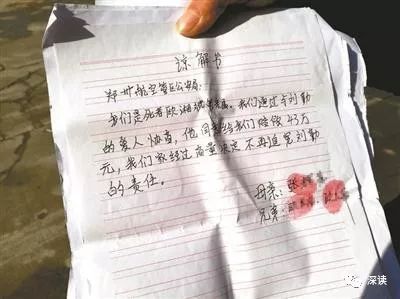 谅解书
郑州航空管区公安局:
我们是死者欧湘斌亲属。我们通过与刘勤
的家人协商,他同意给我们赔偿43万
元,我们家经过商量决定不再追究刘勤
的责任。
母亲:张
兄弟:
深读